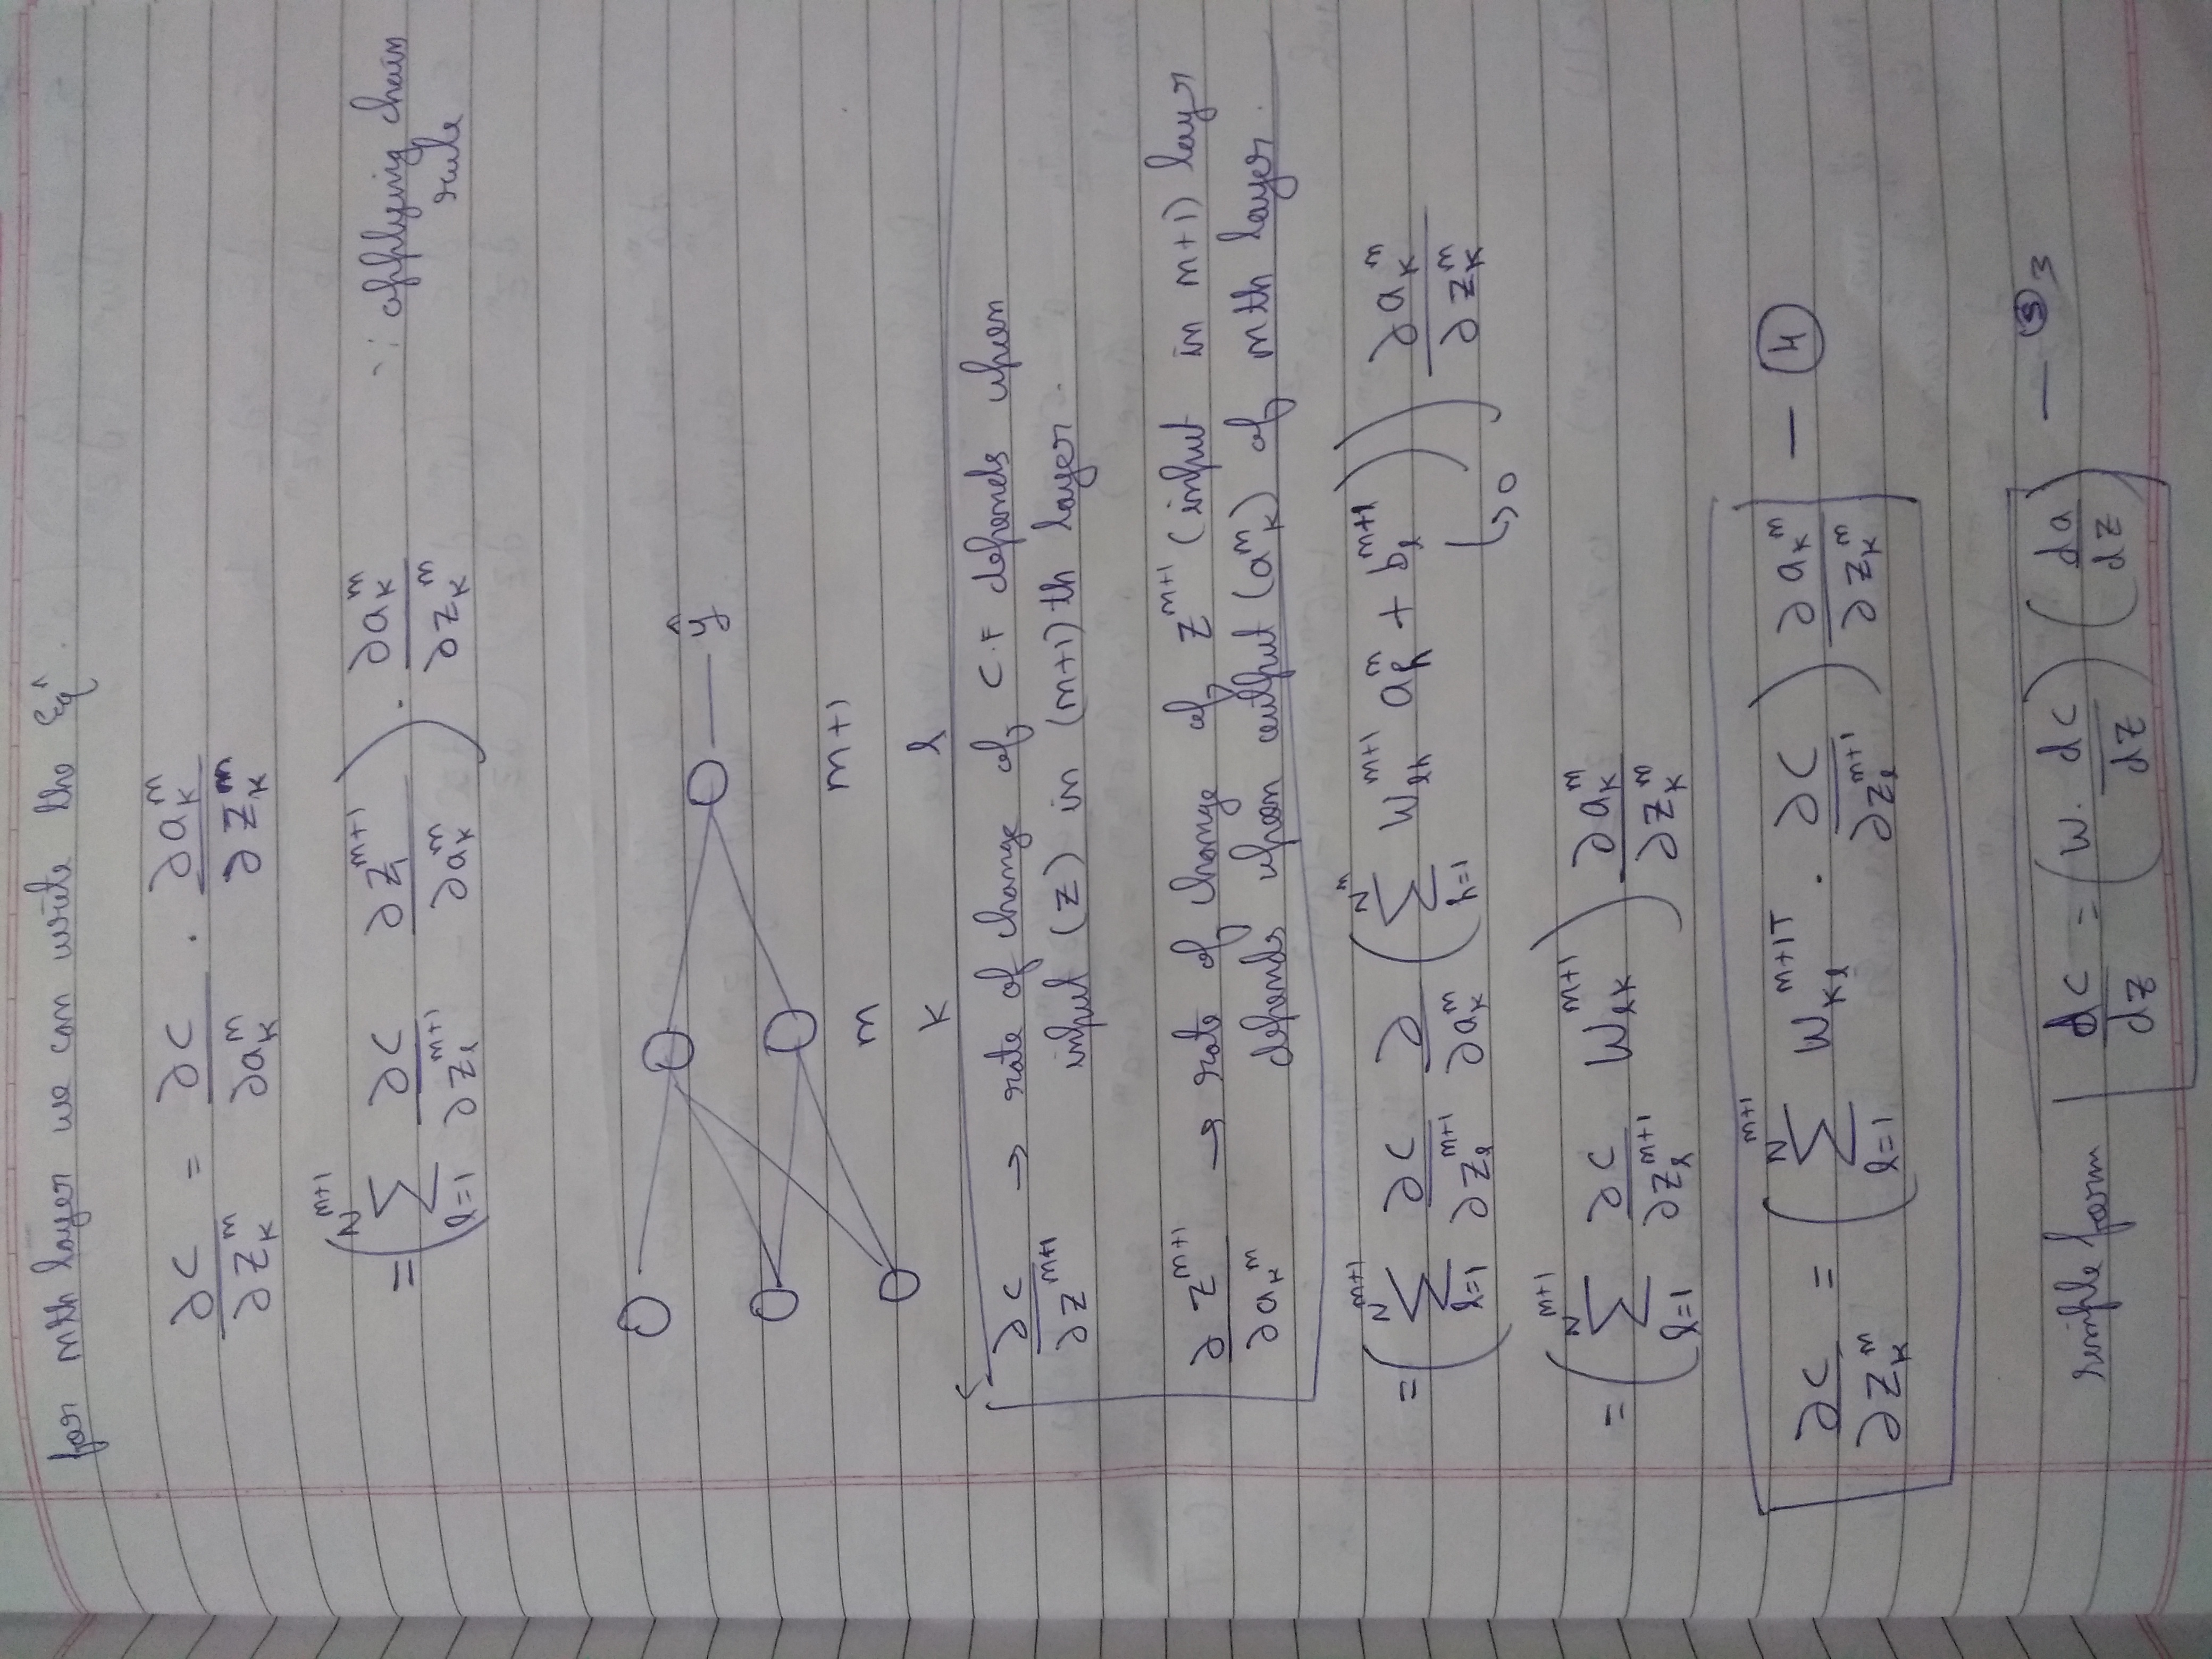 for mth layer we can write the Eqⁿ.
∂C/∂z_k^m = ∂C/∂a_k^m · ∂a_k^m/∂z_k^m
= ( Σ_{l=1}^{N^{m+1}} ∂C/∂z_l^{m+1} ∂z_l^{m+1}/∂a_k^m ) · ∂a_k^m/∂z_k^m ∵ applying chain rule
ŷ
m m+1
k l
∂C/∂z^{m+1} → rate of change of C.F depends upon
input (z) in (m+1)th layer.
∂z^{m+1}/∂a_k^m → rate of change of z^{m+1} (input in m+1) layer
depends upon output (a_k^m) of mth layer.
= ( Σ_{l=1}^{N^{m+1}} ∂C/∂z_l^{m+1} ∂/∂a_k^m ( Σ_{h=1}^{N^m} W_{lh}^{m+1} a_h^m + b_l^{m+1} ) ) ∂a_k^m/∂z_k^m
↳ 0
= ( Σ_{l=1}^{N^{m+1}} ∂C/∂z_l^{m+1} W_{lk}^{m+1} ) ∂a_k^m/∂z_k^m
∂C/∂z_k^m = ( Σ_{l=1}^{N^{m+1}} W_{kl}^{m+1T} · ∂C/∂z_l^{m+1} ) ∂a_k^m/∂z_k^m — (4)
simple form dC/dz = ( W · dC/dz ) ( da/dz ) —